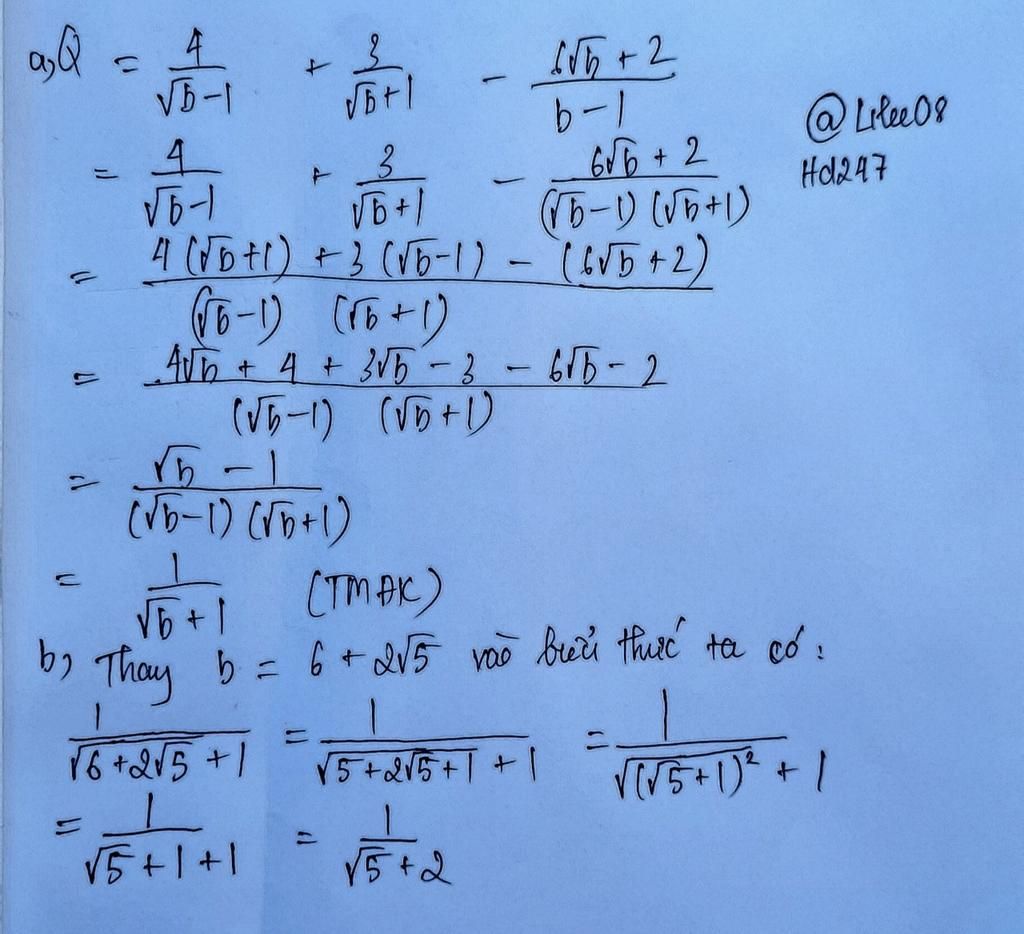 a, Q = 4/(√b-1) + 3/(√b+1) - (6√b + 2)/(b-1)
@Lilee08
= 4/(√b-1) + 3/(√b+1) - (6√b + 2)/((√b-1)(√b+1))
Hd247
= (4(√b+1) + 3(√b-1) - (6√b+2))/((√b-1)(√b+1))
= (4√b + 4 + 3√b - 3 - 6√b - 2)/((√b-1)(√b+1))
= (√b - 1)/((√b-1)(√b+1))
= 1/(√b+1) (TMĐK)
b, Thay b = 6 + 2√5 vào biểu thức ta có:
1/(√(6+2√5) + 1) = 1/(√(5+2√5+1) + 1) = 1/(√((√5+1)²) + 1)
= 1/(√5+1+1) = 1/(√5+2)